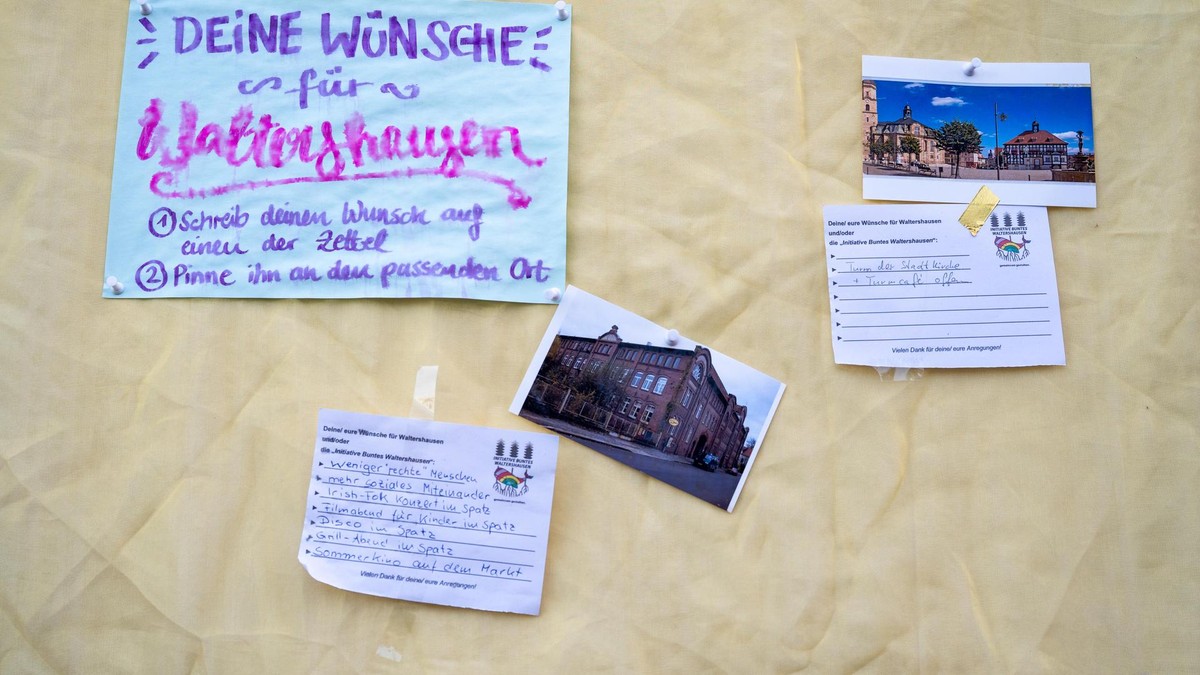 DEINE WÜNSCHE
für
Waltershausen
① Schreib deinen Wunsch auf
einen der Zettel
② Pinne ihn an den passenden Ort
Deine/ eure Wünsche für Waltershausen
und/oder
die „Initiative Buntes Waltershausen“:
INITIATIVE BUNTES
WALTERSHAUSEN
Turm der Stadtkirche
+ Turmcafé offen
Vielen Dank für deine/ eure Anregungen!
Deine/ eure Wünsche für Waltershausen
und/oder
die „Initiative Buntes Waltershausen“:
INITIATIVE BUNTES
WALTERSHAUSEN
Weniger "rechte" Menschen
mehr soziales Miteinander
Irish-Folk Konzert im Spatz
Filmabend für Kinder im Spatz
Disco im Spatz
Grill-Abend im Spatz
Sommerkino auf dem Markt
Vielen Dank für deine/ eure Anregungen!